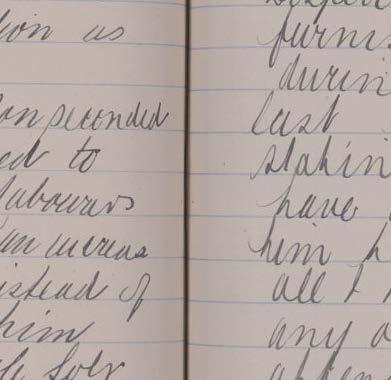 tion as
on seconded
ed to
labourers
an increas
istead of
him
furnis
durin
last
statin
have
him h
all t
any o